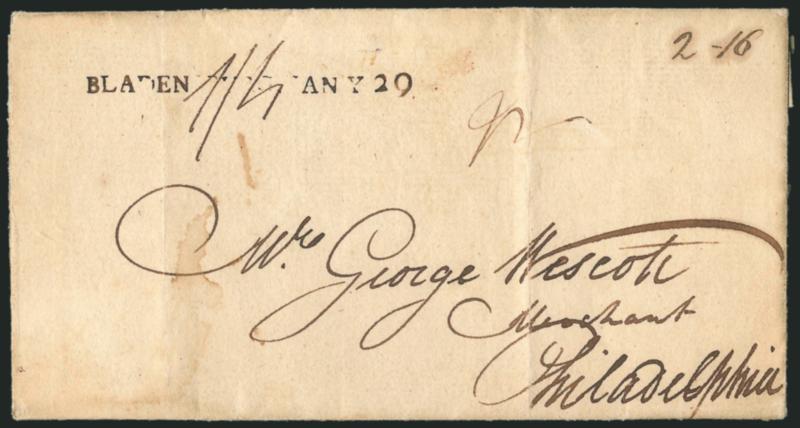 2-16
BLADEN JANY 29
1/4
Mr. George Wescott
Merchant
Philadelphia